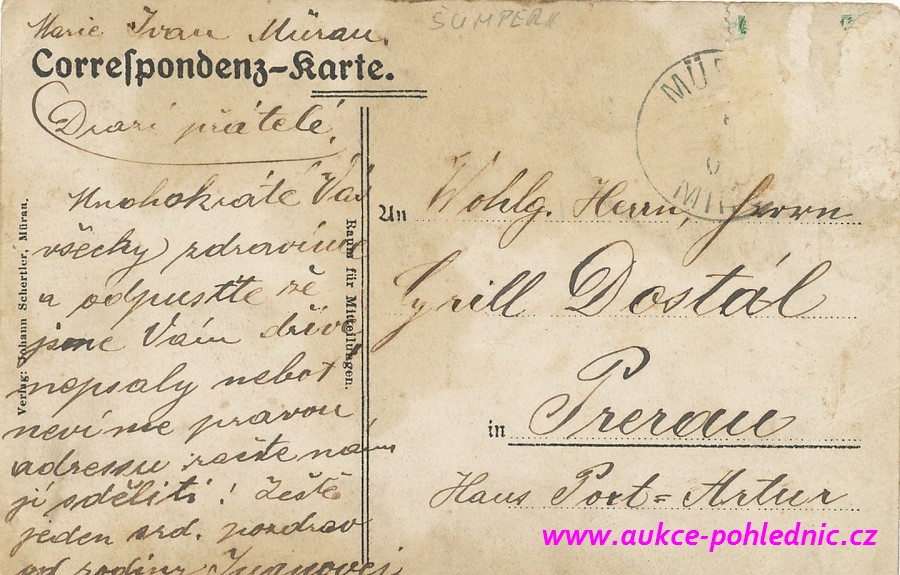 Marie Ivan Müran.
ŠUMPERK
Correspondenz-Karte.
Drazí přátelé,
Mnohokráte Vás
všecky zdravíme
a odpusťte že
jsme Vám dříve
nepsaly neboť
nevíme pravou
adressu račte nám
ji sděliti! Ještě
jeden srd. pozdrav
od rodiny Ivanovej
Verlag: Johann Schertler, Müran.
Raum für Mitteilungen.
MÜR
MÜR
An Wohlg. Herrn, Herrn
Cyrill Dostál
in Prerau
Haus Port=Artur
www.aukce-pohlednic.cz